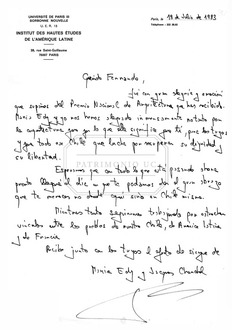 UNIVERSITÉ DE PARIS III
SORBONNE NOUVELLE
U. E. R. 12
INSTITUT DES HAUTES ÉTUDES
DE L'AMÉRIQUE LATINE
28, rue Saint-Guillaume
75007 PARIS
Paris, le 19 de Julio de 1983
Querido Fernando,
Fué con gran alegría y emoción
que supimos del Premio Nacional de Arquitectura que has recibido.
María Edy y yo nos hemos alegrado inmensamente
la arquitectura por lo que ella significa por tí, por los tuyos
y por todo en Chile que lucha por recuperar su dignidad y
su libertad.
Esperamos que con todo lo que está pasando ahora
pronto llegue el día en que te podamos dar el gran abrazo
que te mereces no desde aquí sino en Chile mismo.
Mientras tanto seguiremos trabajando por estrechar
vínculos entre los pueblos de nuestro Chile, de América Latina
y de Francia
Recibe junto con los tuyos el afecto de siempre de
María Edy y Jacques Chonchol
PATRIMONIO UC